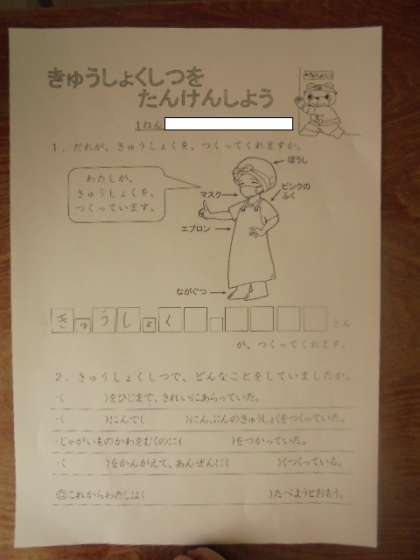 きゅうしょくしつを
たんけんしよう
1ねん
1．だれが、きゅうしょくを、つくってくれますか。
ぼうし
わたしが、
きゅうしょくを、
つくっています。
マスク
ピンクの
ふく
エプロン
ながぐつ
きゅうしょく
さん
が、つくってくれます。
2．きゅうしょくしつで、どんなことをしていましたか。
・（　　　）をひじまで、きれいにあらっていた。
・（　　　）にんで（　　　）にんぶんのきゅうしょくをつくっていた。
・じゃがいものかわをむくのに（　　　）をつかっていた。
・（　　　）をかんがえて、あんぜんに（　　　）くつくっている。
◎これからわたしは（　　　）たべようとおもう。